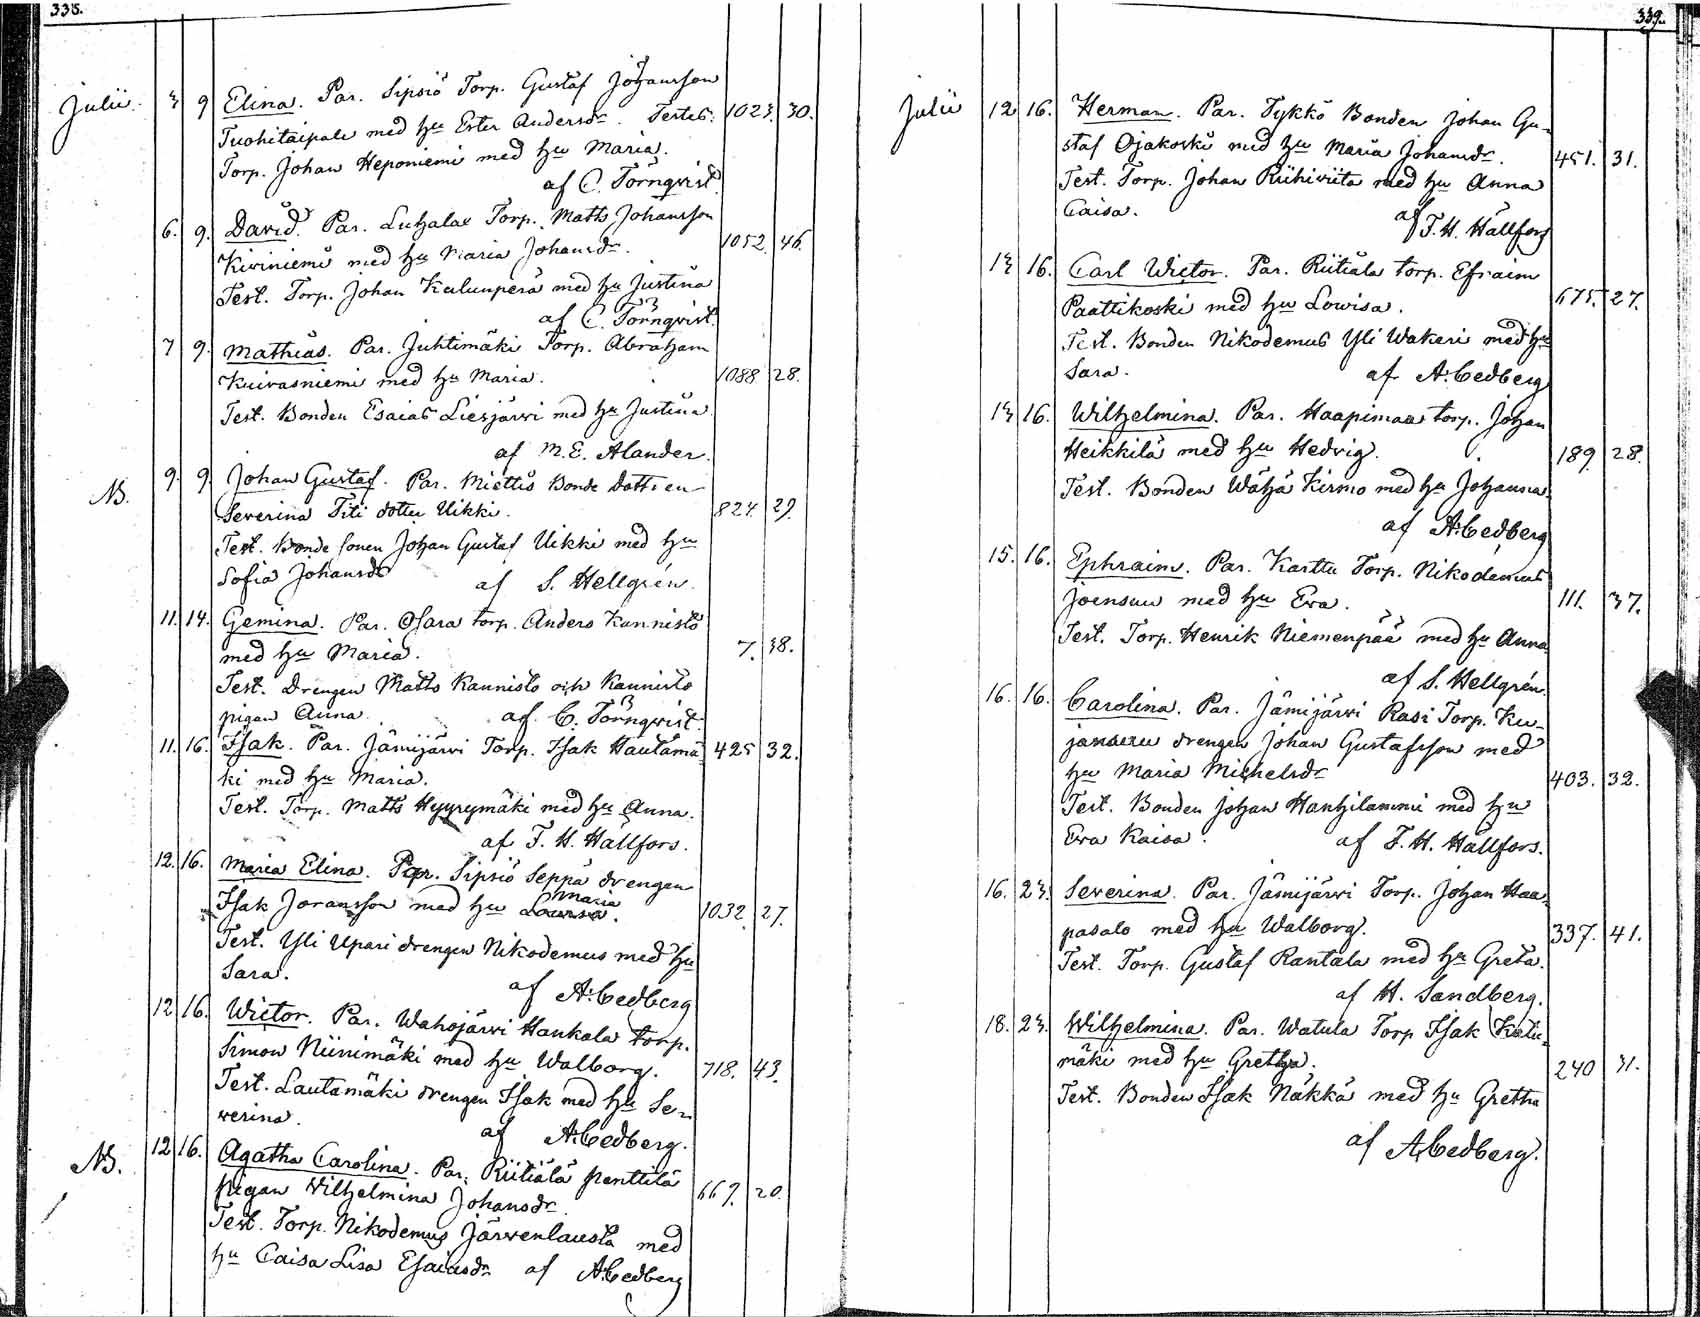 338.
Julii. 3 9 Elina. Par. Sipsiö Torp. Gustaf Johansson
Tuohitaipale med hu Ester Andersdr. Testes: 1023. 30.
Torp. Johan Heponiemi med hu Maria.
af C. Törnqvist.
6. 9. David. Par. Luhalax Torp. Matts Johansson
Kiviniemi med hu Maria Johansdr. 1052. 46.
Test. Torp. Johan Keilunperä med hu Justina
af C. Törnqvist.
7 9. Mathias. Par. Juhtimäki Torp. Abraham
Kuivasniemi med hu Maria. 1088 28.
Test. Bonden Esaias Liesjärvi med hu Justina
af M. E. Alander.
NB. 9. 9. Johan Gustaf. Par. Miettis Bonde Dotteren
Severina Titi dotter Uikki. 824. 29.
Test. Bonde sonen Johan Gustaf Uikki med hu
Sofia Johansdr
af S. Hellgrén.
11. 14. Gemina. Par. Osara torp. Anders Kannisto
med hu Maria. 7. 38.
Test. Drengen Matts Kannisto och Kannisto
pigan Anna. af C. Törnqvist.
11. 16. Isak. Par. Jämijärvi Torp. Isak Hautamä 425 32.
ki med hu Maria.
Test. Torp. Matts Hyyrymäki med hu Anna.
af F. H. Hällfors.
12. 16. Maria Elina. Par. Sipsiö Seppä drengen
Maria
Isak Joransson med hu Lovisa. 1032. 27.
Test. Yli Upari drengen Nikodemus med hu
Sara.
af A. Cedberg
12 16. Victor. Par. Wahojärvi Hankala torp.
Simon Niinimäki med hu Walborg. 718. 43.
Test. Lautamäki drengen Isak med hu Se-
verina.
af A. Cedberg.
NB. 12 16. Agatha Carolina. Par. Riitiälä Penttilä
pigan Wilhelmina Johansdr. 667. 20.
Test. Torp. Nikodemus Järvenlausta med
hu Caisa Lisa Esaiasdr af A. Cedberg
339.
Julii 12 16. Herman. Par. Tykkö Bonden Johan Gu-
staf Ojakoski med hu Maria Johansdr. 451. 31.
Test. Torp. Johan Riihiviita med hu Anna
Caisa.
af F. H. Hällfors
13 16. Carl Victor. Par. Riitiala torp. Efraim
Paattikoski med hu Lowisa. 675. 27.
Test. Bonden Nikodemus Yli Wakeri med hu
Sara. af A. Cedberg
13 16. Wilhelmina. Par. Haapimaa torp. Johan
Heikkilä med hu Hedvig. 189. 28.
Test. Bonden Wähä Kirmo med hu Johanna.
af A. Cedberg
15. 16. Ephraim. Par. Karttu Torp. Nikodemus
Joensuu med hu Eva. 111. 37.
Test. Torp. Henrik Niemenpää med hu Anna.
af S. Hellgrén.
16. 16. Carolina. Par. Jämijärvi Rasi Torp. Ku-
drengen Johan Gustafsson med
hu Maria Michelsdr 403. 32.
Test. Bonden Johan Hanhilammi med hu
Eva Kaisa. af F. H. Hällfors.
16. 23. Severina. Par. Jämijärvi Torp. Johan Haa-
pasalo med hu Walborg. 337. 41.
Test. Torp. Gustaf Rantala med hu Greta.
af H. Sandberg.
18. 23. Wilhelmina. Par. Watula Torp Isak Katu-
mäki med hu Gretha. 240 31.
Test. Bonden Isak Näkkä med hu Gretha
af A. Cedberg.